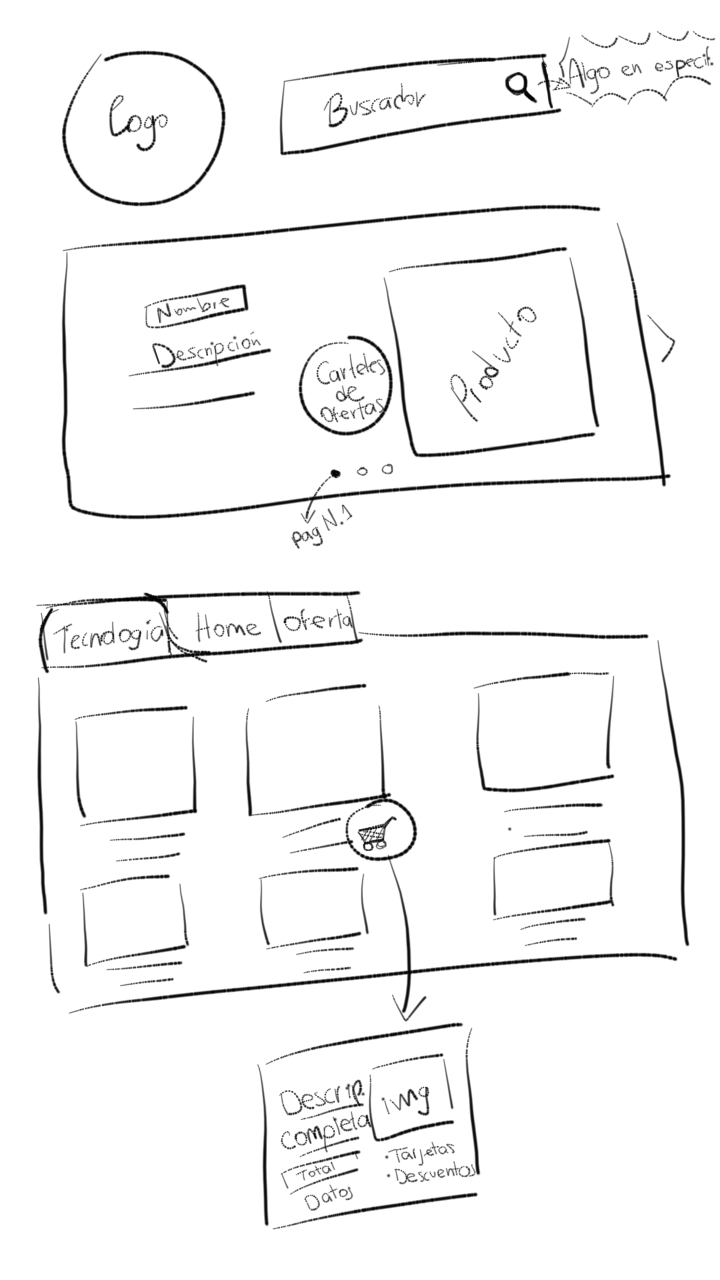 Logo
Buscador
Algo en especif.
Nombre
Descripción
Carteles
de
Ofertas
Producto
pag N.1
Tecnologia
Home
Oferta
Descrip.
completa
Total
Datos
img
·Tarjetas
·Descuentos